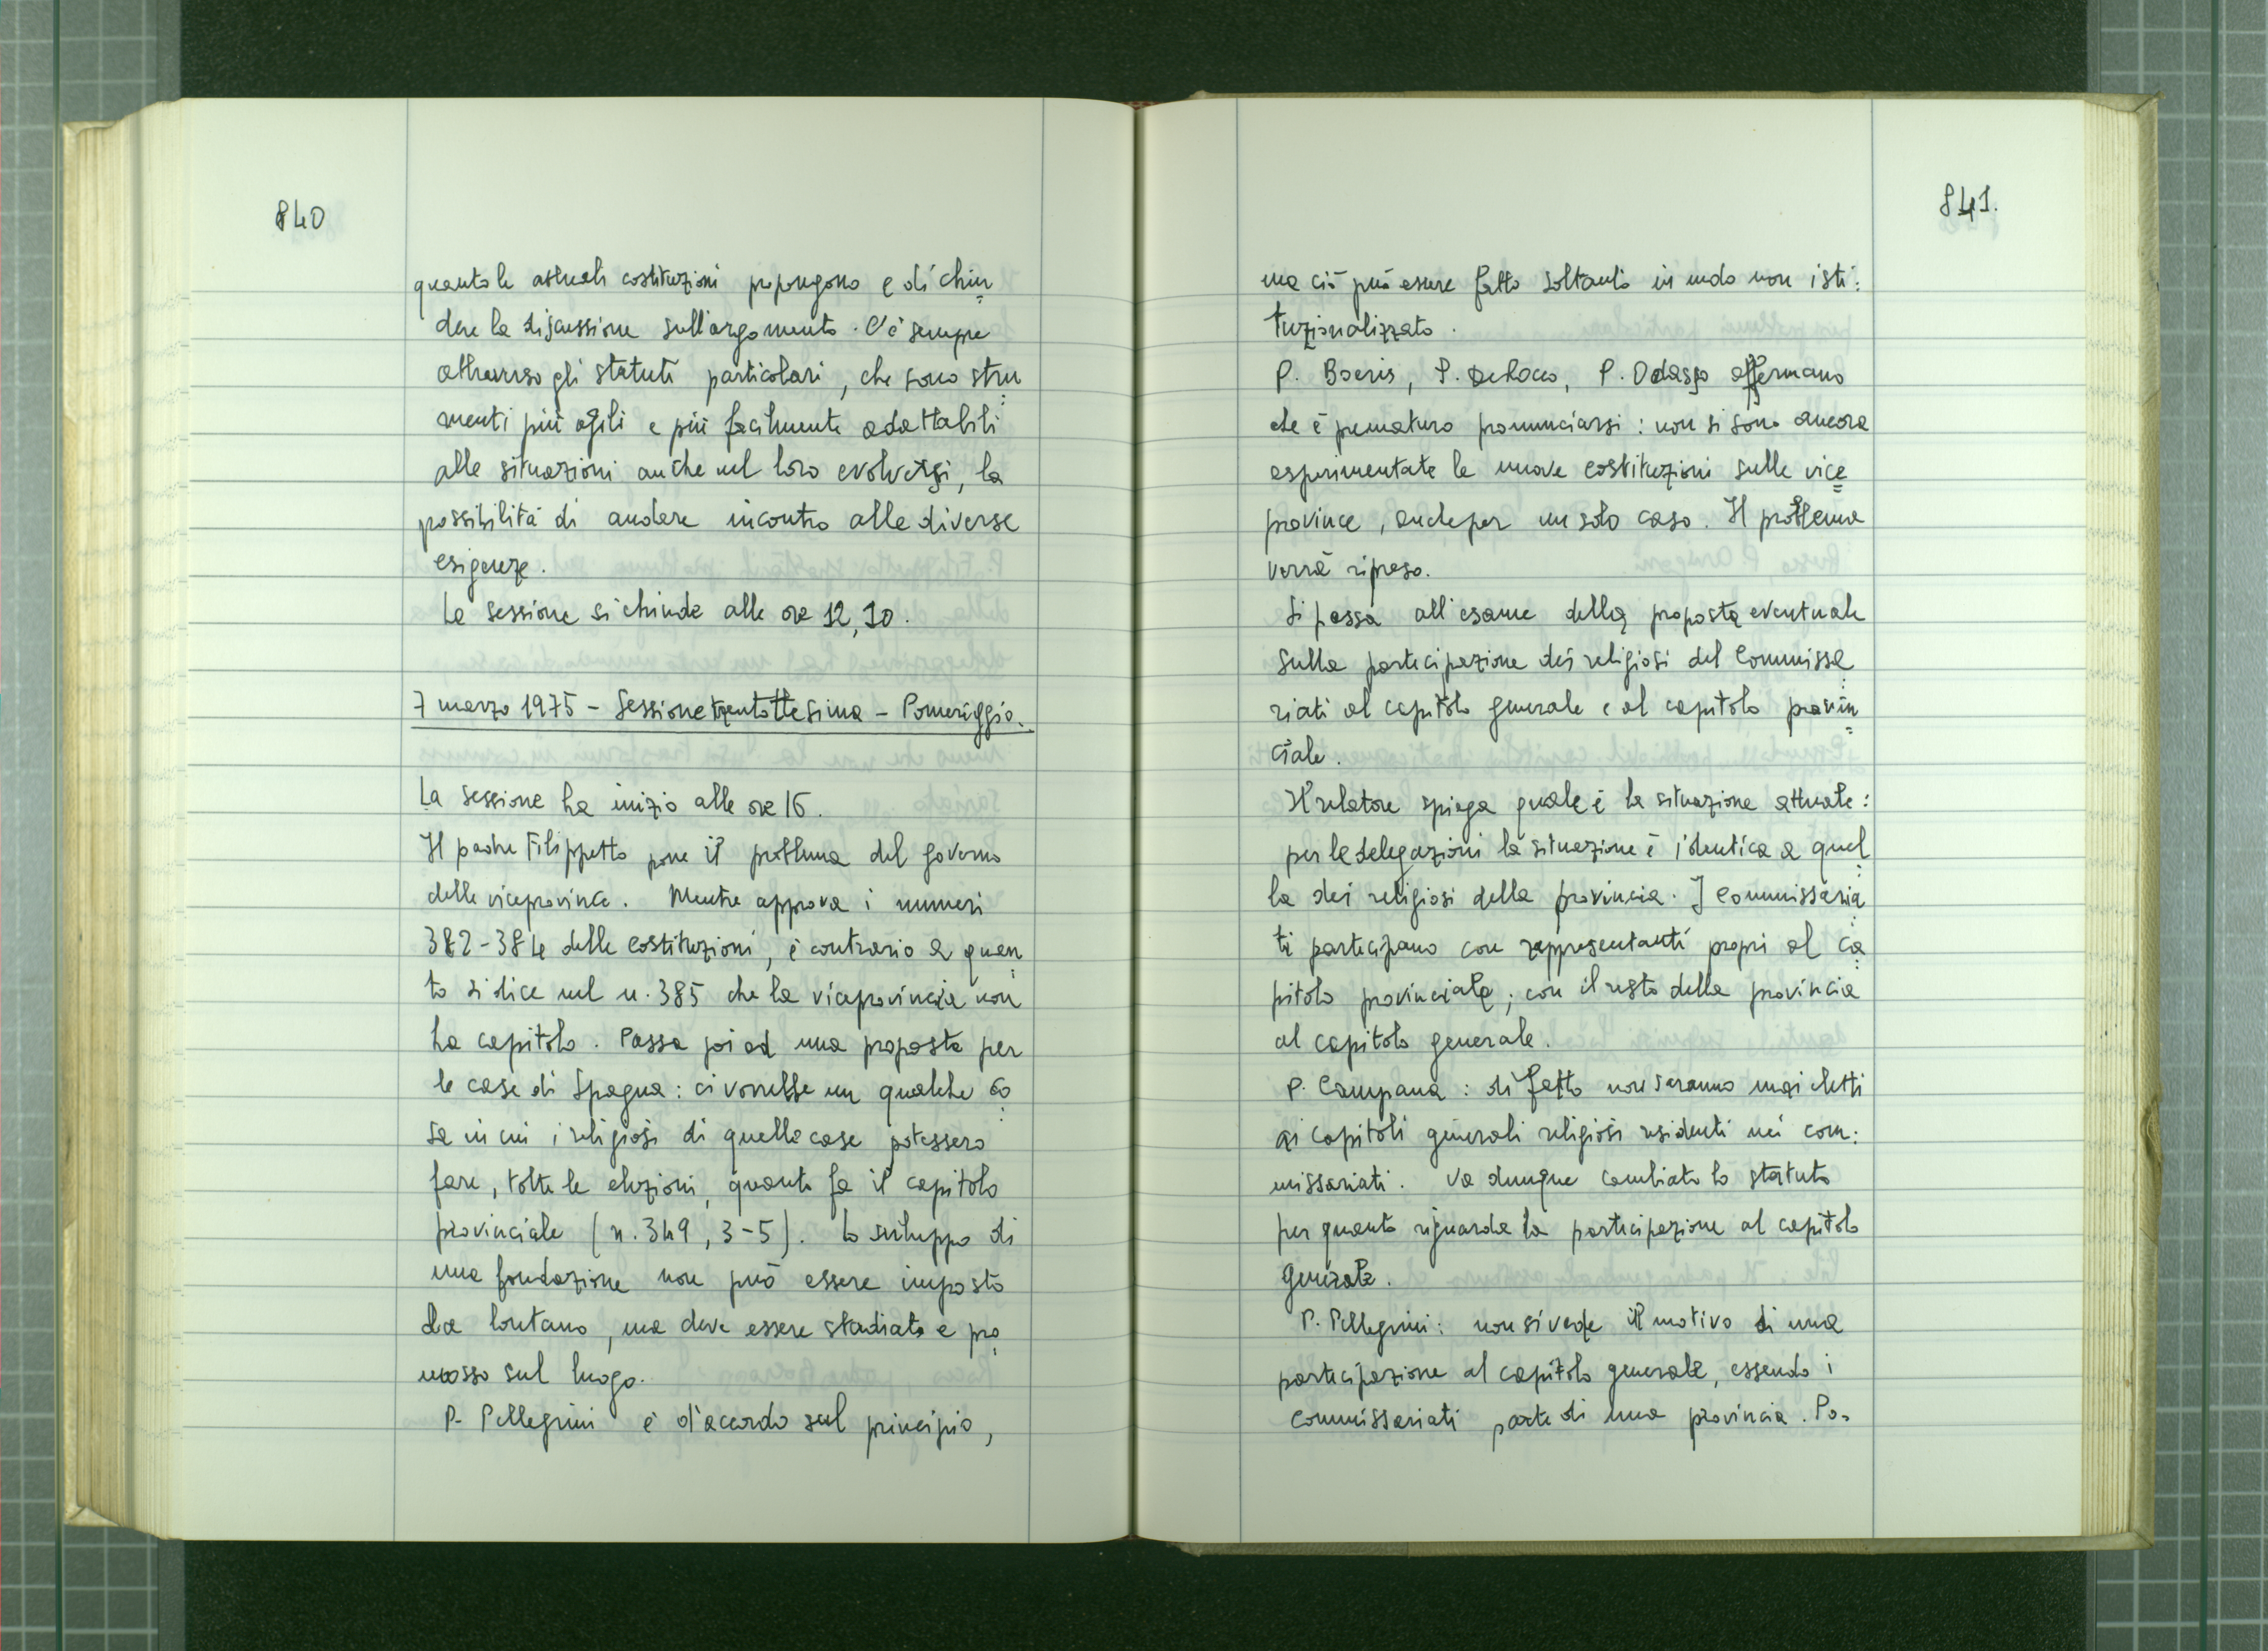 840
quanto le attuali costituzioni propongono e di chiu
dere la discussione sull'argomento. C'è sempre
attraverso gli statuti particolari, che sono stru
menti più agili e più facilmente adattabili
alle situazioni anche nel loro evolversi, la
possibilità di andare incontro alle diverse
esigenze.
La sessione si chiude alle ore 12,10.
7 marzo 1975 - Sessione trentottesima - Pomeriggio.
La sessione ha inizio alle ore 16.
Il padre Filippetto pone il problema del governo
delle viceprovince. Mentre approva i numeri
382-384 delle costituzioni, è contrario a quan
to si dice nel n. 385 che la viceprovincia non
ha capitolo. Passa poi ad una proposta per
le case di Spagna: ci vorrebbe un qualche co
sa in cui i religiosi di quelle case potessero
fare, tolte le elezioni, quanto fa il capitolo
provinciale (n. 349, 3-5). Lo sviluppo di
una fondazione non può essere imposto
da lontano, ma deve essere studiato e pro
mosso sul luogo.
P. Pellegrini è d'accordo sul principio,
841.
ma ciò può essere fatto soltanto in modo non isti:
tuzionalizzato.
P. Boeris, P. DeRocco, P. Odasso affermano
che è prematuro pronunciarsi: non si sono ancora
esperimentate le nuove costituzioni sulle vice
province, anche per un solo caso. Il problema
verrà ripreso.
Si passa all'esame della proposta eventuale
sulla partecipazione dei religiosi del Commissa
riati al capitolo generale e al capitolo provin
ciale.
Il relatore spiega quale è la situazione attuale:
per le delegazioni la situazione è identica a quel
la dei religiosi della provincia. I Commissaria
ti partecipano con rappresentanti propri al ca
pitolo provinciale; con il resto della provincia
al capitolo generale.
P. Campana: di fatto non saranno mai eletti
ai capitoli generali religiosi residenti nei com:
missariati. Va dunque cambiato lo statuto
per quanto riguarda la partecipazione al capitolo
generale.
P. Pellegrini: non si vede il motivo di una
partecipazione al capitolo generale, essendo i
commissariati parte di una provincia. Po=